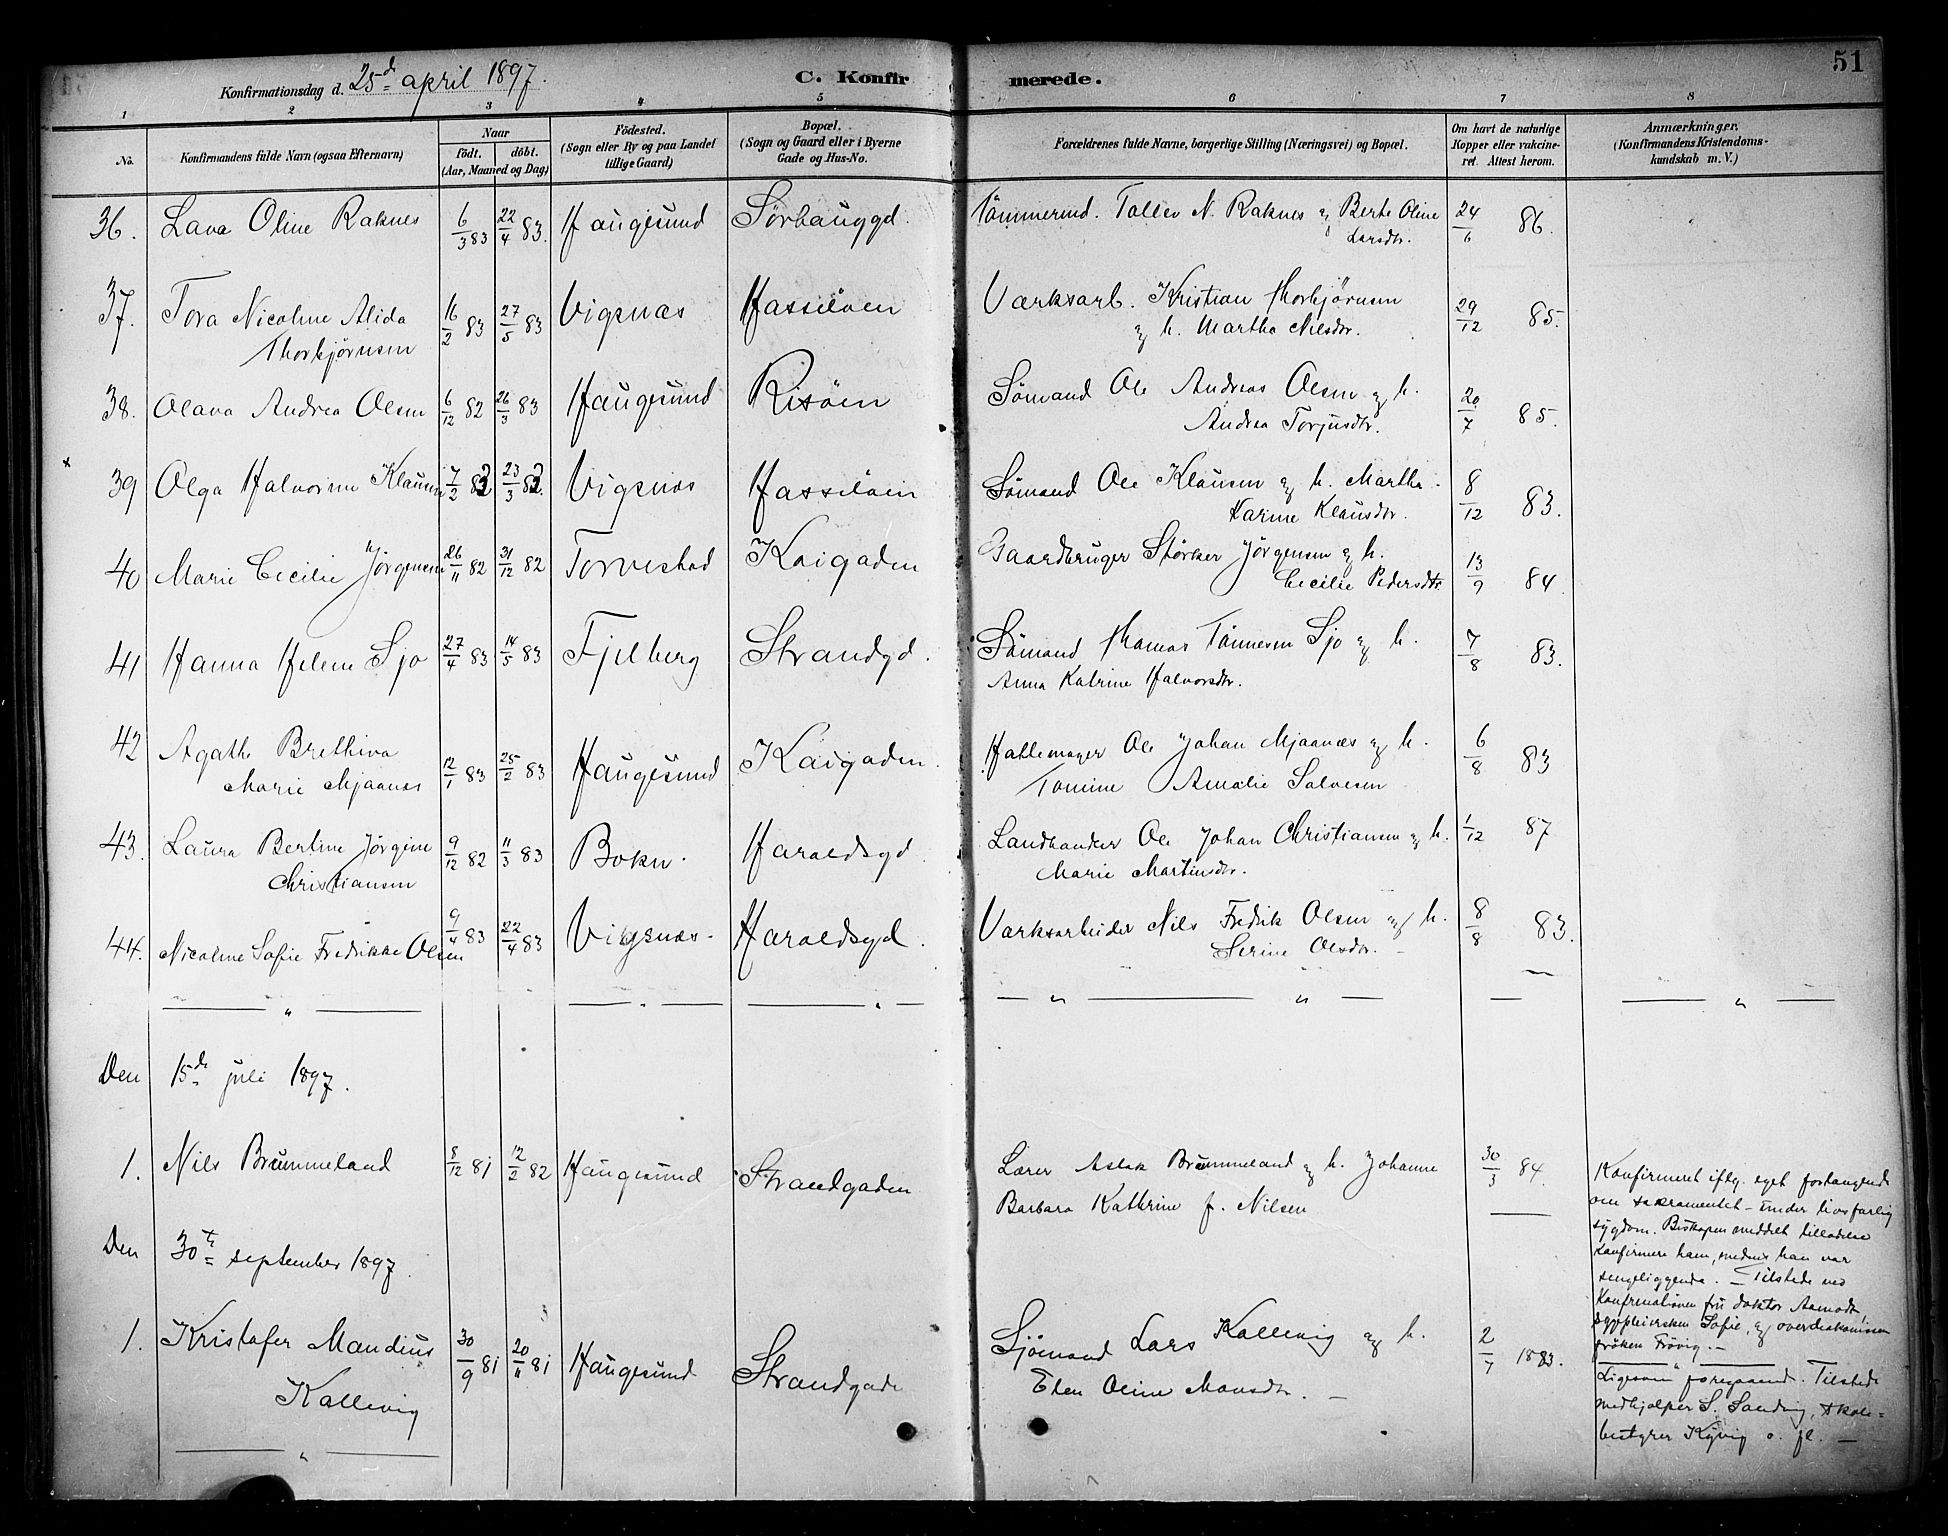 51
Konfirmationsdag d. 25d april 1897.
C. Konfirmerede.
1 2 3 4 5 6 7 8
No.
Konfirmandens fulde Navn (ogsaa Efternavn)
Naar
födt. döbt.
(Aar, Maaned og Dag)
Födested.
(Sogn eller By og paa Landet
tillige Gaard)
Bopæl.
(Sogn og Gaard eller i Byerne
Gade og Hus-No.
Forældrenes fulde Navne, borgerlige Stilling (Næringsvei) og Bopæl.
Om havt de naturlige
Kopper eller vakcine-
ret. Attest herom.
Anmærkninger.
(Konfirmandens Kristendoms-
kundskab m. V.)
36. Lava Oline Raknes 6/3 83 22/4 83. Haugesund Sørhauggd. Tømmermd. Tallev N. Raknes og Berte Oline 24/6 86.
Larsdtr.
37. Tora Nicoline Alida 16/2 83 27/5 83 Vigsnæs Hasseløen Værksarb. Kristian Thorbjørnsen 29/12 85.
Thorbjørnsen og h. Martha Nilsdtr.
38. Olava Andrea Olsen 6/12 82 26/3 83 Haugesund Risöen Sømand Ole Andreas Olsen og h. 20/7 85.
Andrea Torjusdtr.
39 Olga Halvorine Klausen 7/2 82 23/3 82. Vigsnæs Hasseløen Sømand Ole Klausen og h. Martha 8/12 83.
Karine Klausdtr.
40 Marie Cecilie Jörgensen 26/11 82 31/12 82 Torvestad Kaigaden Gaardbruger Størker Jörgensen og h. 13/9 84.
Cecilie Pedersdtr.
41 Hanna Helene Sjo 27/4 83 14/5 83 Fjelberg Strandgd. Sömand Thomas Tönnesen Sjo og h. 7/8 83.
Anna Katrine Halvorsdtr.
42 Agathe Brethiva 12/1 83 25/2 83 Haugesund Kaigaden. Hattemager Ole Johan Mjaanæs og h. 6/8 83
Marie Mjaanæs Tomine Amalie Salvesen
43. Laura Bertine Jörgine 9/12 82 11/3 83 Bokn. Haraldsgd. Landhandler Ole Johan Christiansen og h. 1/12 87
Christiansen Marie Martinsdtr.
44. Nicoline Sofie Fredrikke Olsen 9/4 83 22/4 83 Vigsnæs Haraldsgd. Værksarbeider Nils Fredrik Olsen og h. 8/8 83.
Serine Olsdtr.
Den 15de juli 1897.
1. Nils Brummeland 8/12 81 12/2 82 Haugesund Strandgaden Lærer Aslak Brummeland og h. Johanne 30/3 84.
Barbara Kathrine f. Nilsen
Konfirmeret iftg. eget forlangende
om sakramentet – under livsfarlig
sygdom. Biskopen meddelt tilladelse
konfirmere ham, medens han var
sengeliggende. – Tilstede ved
Konfirmationen fru doktor Aamodt,
sygepleiersken Sofie, og overdiakonissen
fröken Frövig. –
Den 30te september 1897.
1. Kristofer Mandius 30/9 81 20/11 81 Haugesund Strandgade Sjömand Lars Kallevig og h. 2/7 1883.
Kallevig Elen Oline Monsdtr. –
Ligesom foregaaend. Tilstede
medhjælper S. Sandvig, skole=
bestyrer Kyvig o. fl. –